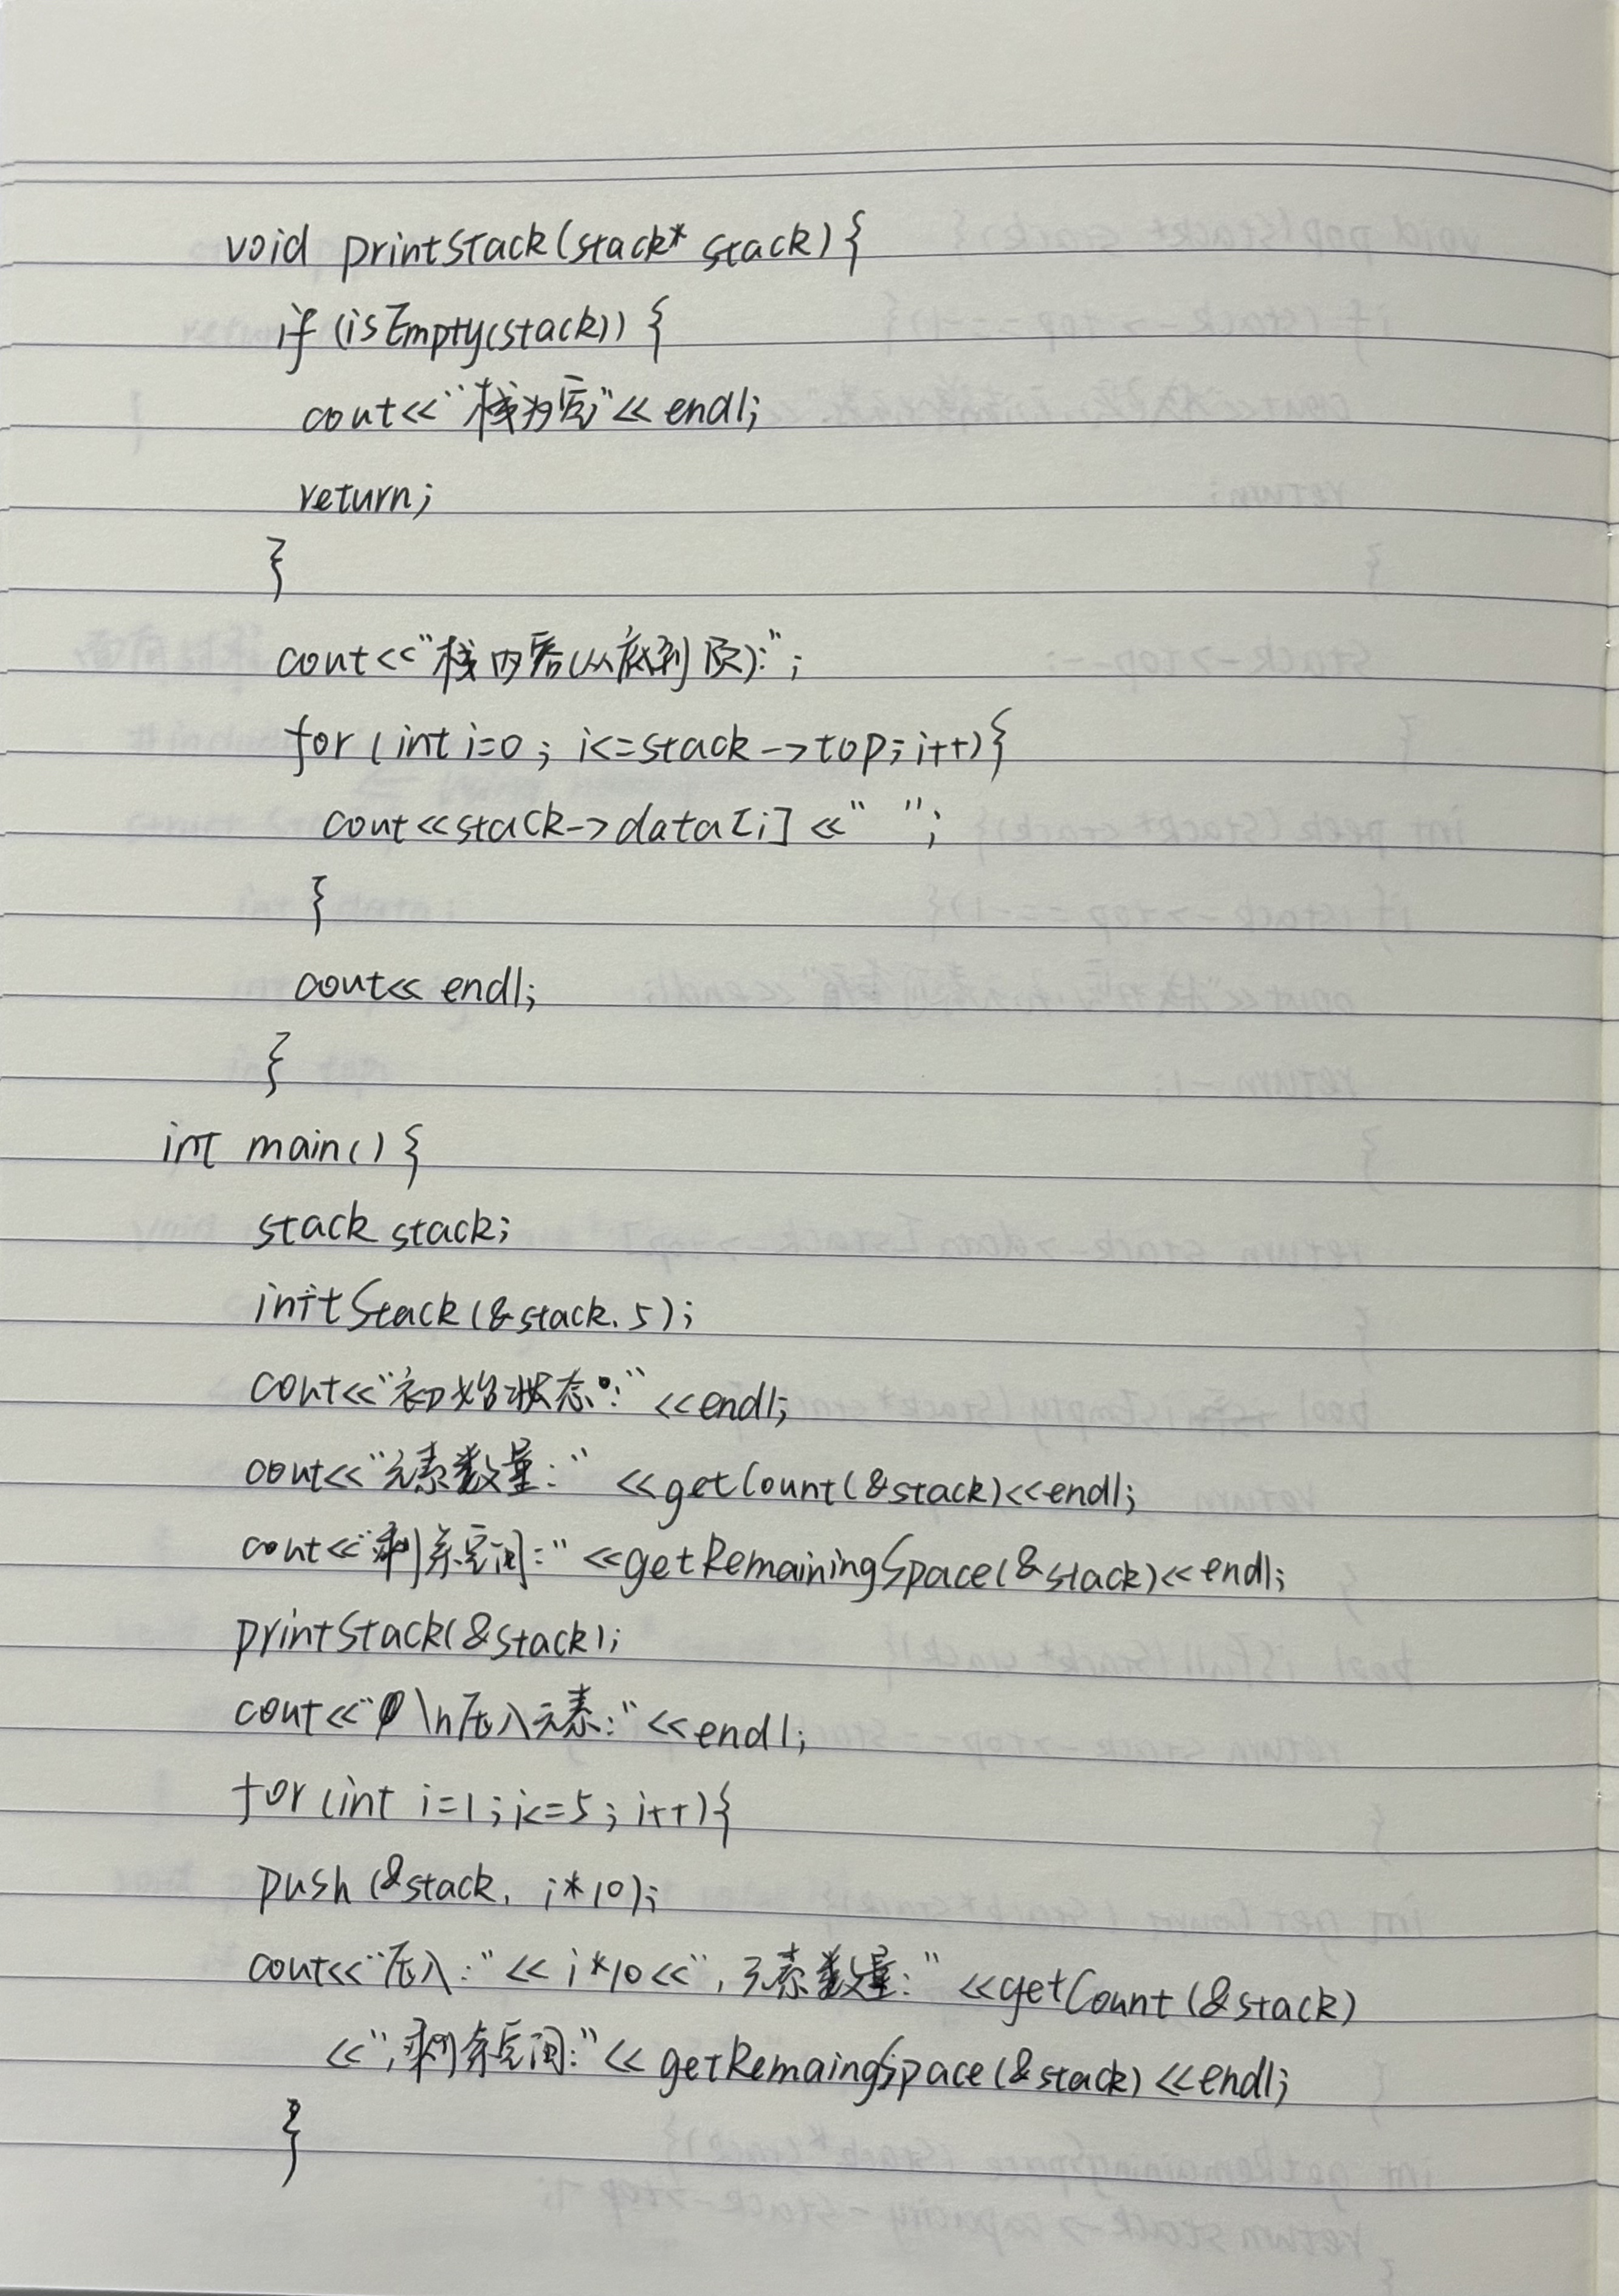 void printStack(stack* stack){
if (isEmpty(stack)) {
cout<<"栈为空"<< endl;
return;
}
cout<<"栈内容(从底到顶):";
for (int i=0; i<=stack->top; i++){
cout<<stack->data[i] <<" ";
}
cout<< endl;
}
int main() {
stack stack;
initStack(&stack, 5);
cout<<"初始状态:" <<endl;
cout<<"元素数量:" <<getCount(&stack)<<endl;
cout<<"剩余空间:" <<getRemainingSpace(&stack)<<endl;
printStack(&stack);
cout<<"\n压入元素:"<<endl;
for (int i=1; i<=5; i++){
push (&stack, i*10);
cout<<"压入:"<< i*10<<", 元素数量:" <<getCount (&stack)
<<", 剩余空间:"<< getRemaingSpace(&stack) <<endl;
}